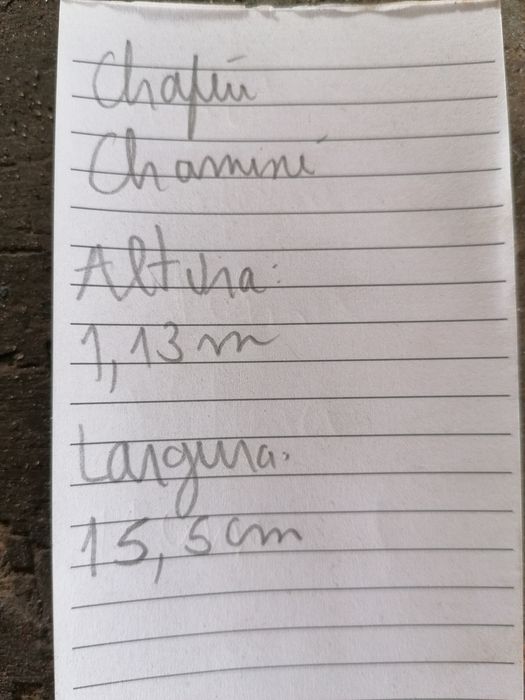 Chapéu
Chaminé
Altura:
1,13 m
Largura:
15,5 cm